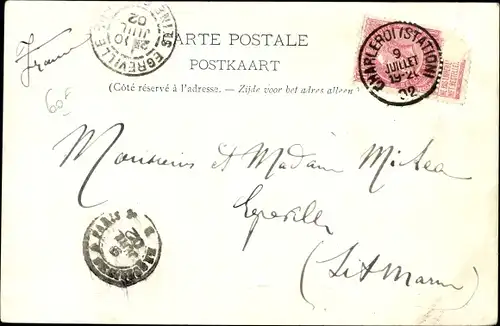 France
EGREVILLE
10
JUIL
02
CARTE POSTALE
POSTKAART
(Côté réservé à l'adresse. - Zijde voor het adres alleen.)
CHARLEROI (STATION)
9
JUILLET
19-21
02
60F
Monsieur et Madame
Egreville
(S et Marne)
PARIS